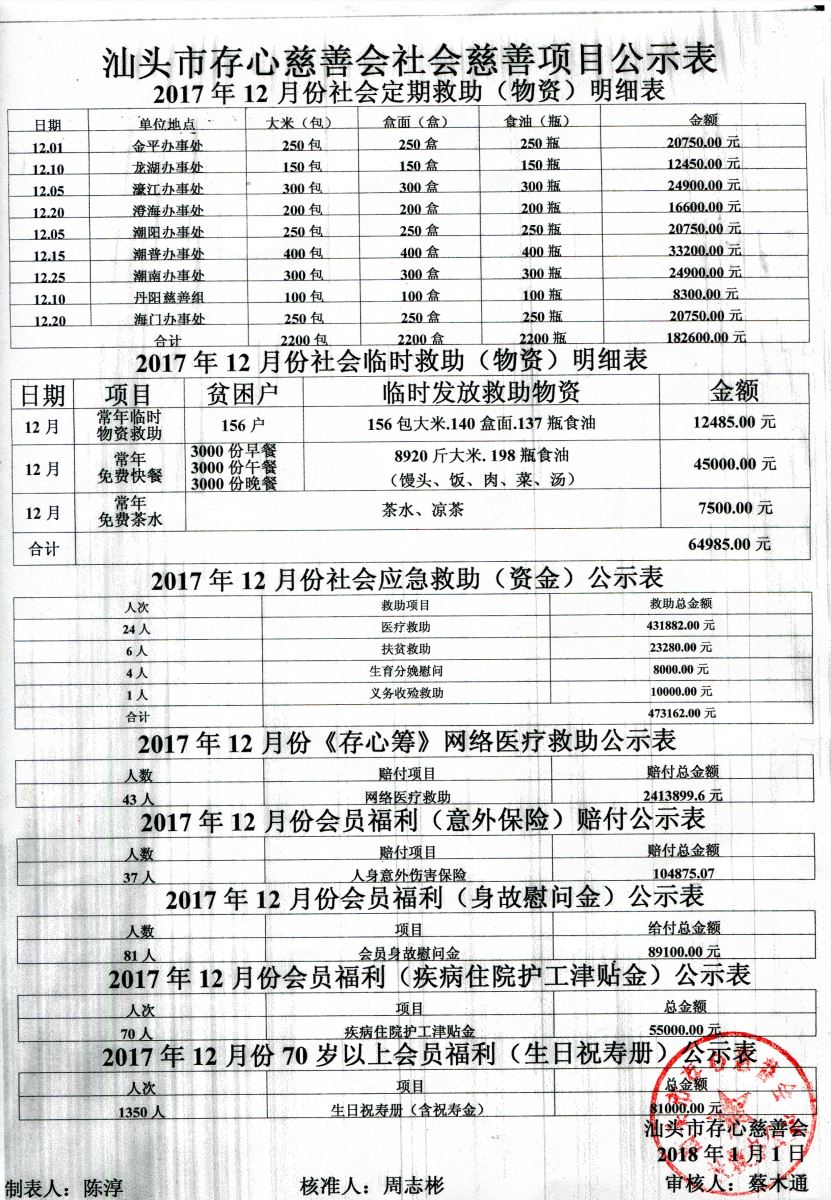 汕头市存心慈善会社会慈善项目公示表
2017 年 12 月份社会定期救助（物资）明细表
日期 单位地点 大米（包） 盒面（盒） 食油（瓶） 金额
12.01 金平办事处 250 包 250 盒 250 瓶 20750.00 元
12.10 龙湖办事处 150 包 150 盒 150 瓶 12450.00 元
12.05 濠江办事处 300 包 300 盒 300 瓶 24900.00 元
12.20 澄海办事处 200 包 200 盒 200 瓶 16600.00 元
12.05 潮阳办事处 250 包 250 盒 250 瓶 20750.00 元
12.15 潮普办事处 400 包 400 盒 400 瓶 33200.00 元
12.25 潮南办事处 300 包 300 盒 300 瓶 24900.00 元
12.10 丹阳慈善组 100 包 100 盒 100 瓶 8300.00 元
12.20 海门办事处 250 包 250 盒 250 瓶 20750.00 元
合计 2200 包 2200 盒 2200 瓶 182600.00 元
2017 年 12 月份社会临时救助（物资）明细表
日期 项目 贫困户 临时发放救助物资 金额
12 月 常年临时 156 户 156 包大米.140 盒面.137 瓶食油 12485.00 元
物资救助
12 月 常年 3000 份早餐 8920 斤大米. 198 瓶食油 45000.00 元
免费快餐 3000 份午餐 （馒头、饭、肉、菜、汤）
3000 份晚餐
12 月 常年 茶水、凉茶 7500.00 元
免费茶水
合计 64985.00 元
2017 年 12 月份社会应急救助（资金）公示表
人次 救助项目 救助总金额
24 人 医疗救助 431882.00 元
6 人 扶贫救助 23280.00 元
4 人 生育分娩慰问 8000.00 元
1 人 义务收殓救助 10000.00 元
合计 473162.00 元
2017 年 12 月份《存心筹》网络医疗救助公示表
人数 赔付项目 赔付总金额
43 人 网络医疗救助 2413899.6 元
2017 年 12 月份会员福利（意外保险）赔付公示表
人数 赔付项目 赔付总金额
37 人 人身意外伤害保险 104875.07
2017 年 12 月份会员福利（身故慰问金）公示表
人数 项目 给付总金额
81 人 会员身故慰问金 89100.00 元
2017 年 12 月份会员福利（疾病住院护工津贴金）公示表
人次 项目 总金额
70 人 疾病住院护工津贴金 55000.00 元
2017 年 12 月份 70 岁以上会员福利（生日祝寿册）公示表
人次 项目 总金额
1350 人 生日祝寿册（含祝寿金） 81000.00 元
汕头市存心慈善会
2018 年 1 月 1 日
制表人：陈淳 核准人：周志彬 审核人：蔡木通